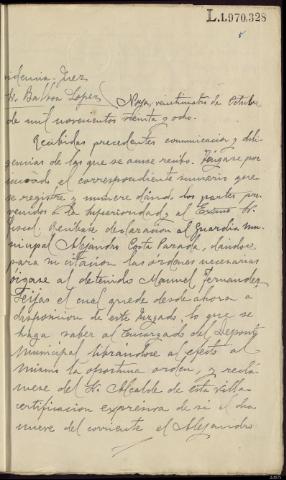 L.1.970.328
Juez
Sr. Barbôa Lopez Noya, veintitrés de Octubre
de mil novecientos treinta y ocho.
Recibidas precedentes comunicación y dili-
gencias de las que se acuse recibo. Fórgase por
el correspondiente sumario que
se registre y numere dándo los partes pre-
venidos á la Superioridad y al Excmo. Sr.
Fiscal. Recíbase declaración al Guardia mu-
nicipal Alejandro Costa Parada, dándose
para su citación las órdenes necesarias
óigase al detenido Manuel Fernandez
Seijas el cual quede desde ahora a
disposicion de este Juzgado, lo que se
haga saber al Encargado del Deposito
Municipal librandose al efecto al
mismo la oportuna orden, y recla-
mese del Sr. Alcalde de esta villa
certificacion expresiva de si el dia
nueve del corriente el Alejandro